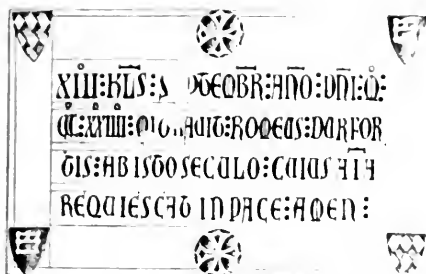 XIII:KLS:S PTEMBR:ANO:DNI:M:
MIG AVIT:ROMEUS:DURFOR
TIS:AB ISTO SECULO:CUIUS AIA
REQUIESCAT IN PACE:AMEN: